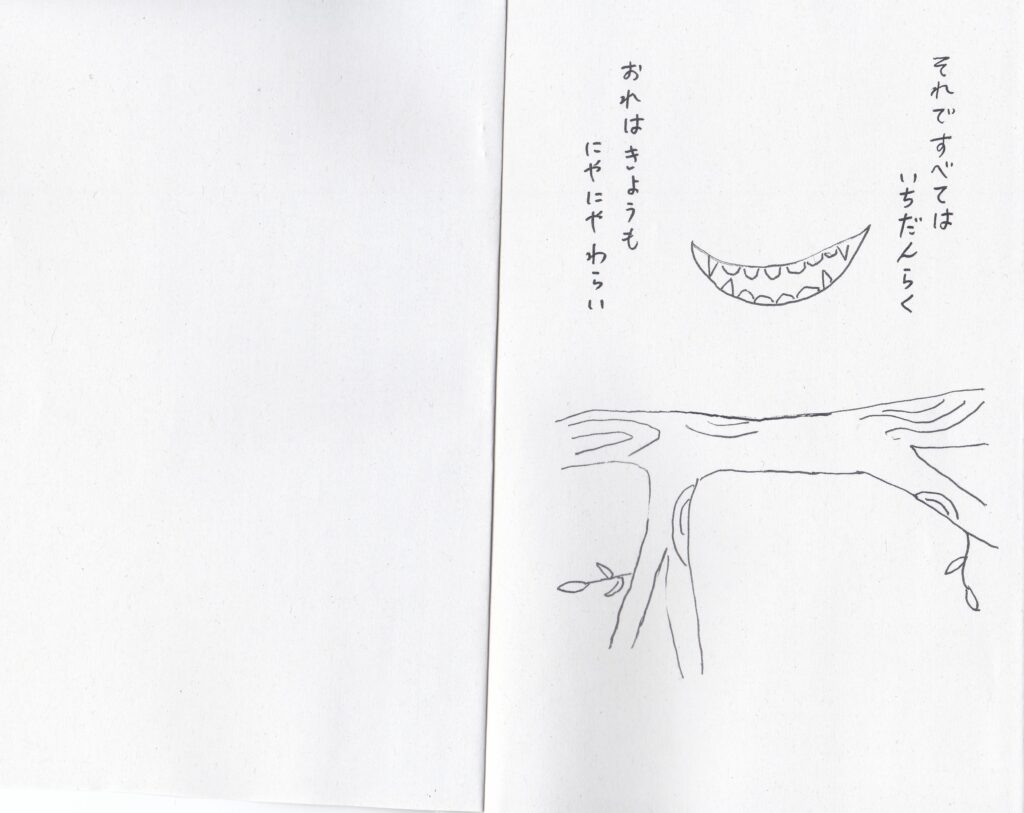 それですべては
いちだんらく
おれはきょうも
にやにやわらい